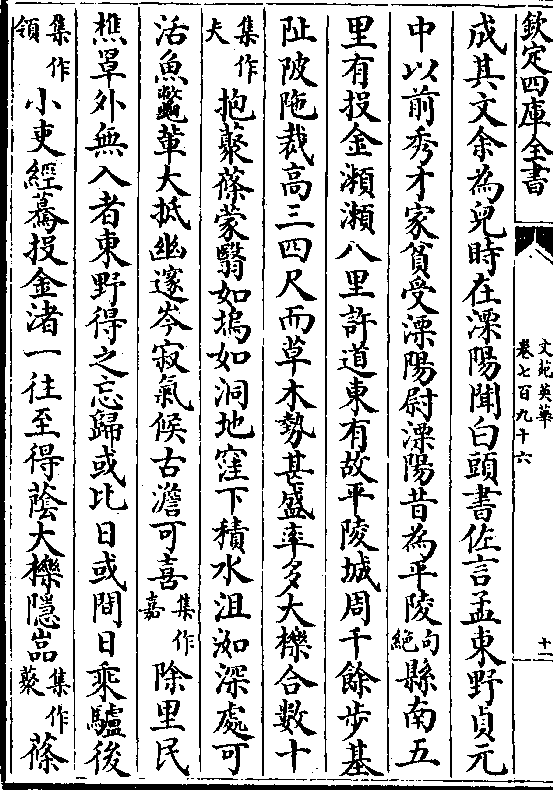 欽定四庫全書
文苑英華
卷七百九十六
十一
成其文余為兒時在溧陽聞白頭書佐言孟東野貞元
中以前秀才家貧受溧陽尉溧陽昔為平陵句絕縣南五
里有投金瀨瀨八里許道東有故平陵城周千餘步基
趾陂陁裁高三四尺而草木勢甚盛率多大櫟合數十
集作夫抱藂蓧蒙翳如塢如洞地窪下積水沮洳深處可
活魚鼈輩大抵幽邃岑寂氣候古澹可喜集作嘉除里民
樵罩外無入者東野得之忘歸或比日或間日乘驢後
集作領小吏經驀投金渚一往至得蔭大櫟隱嵓集作藂蓧